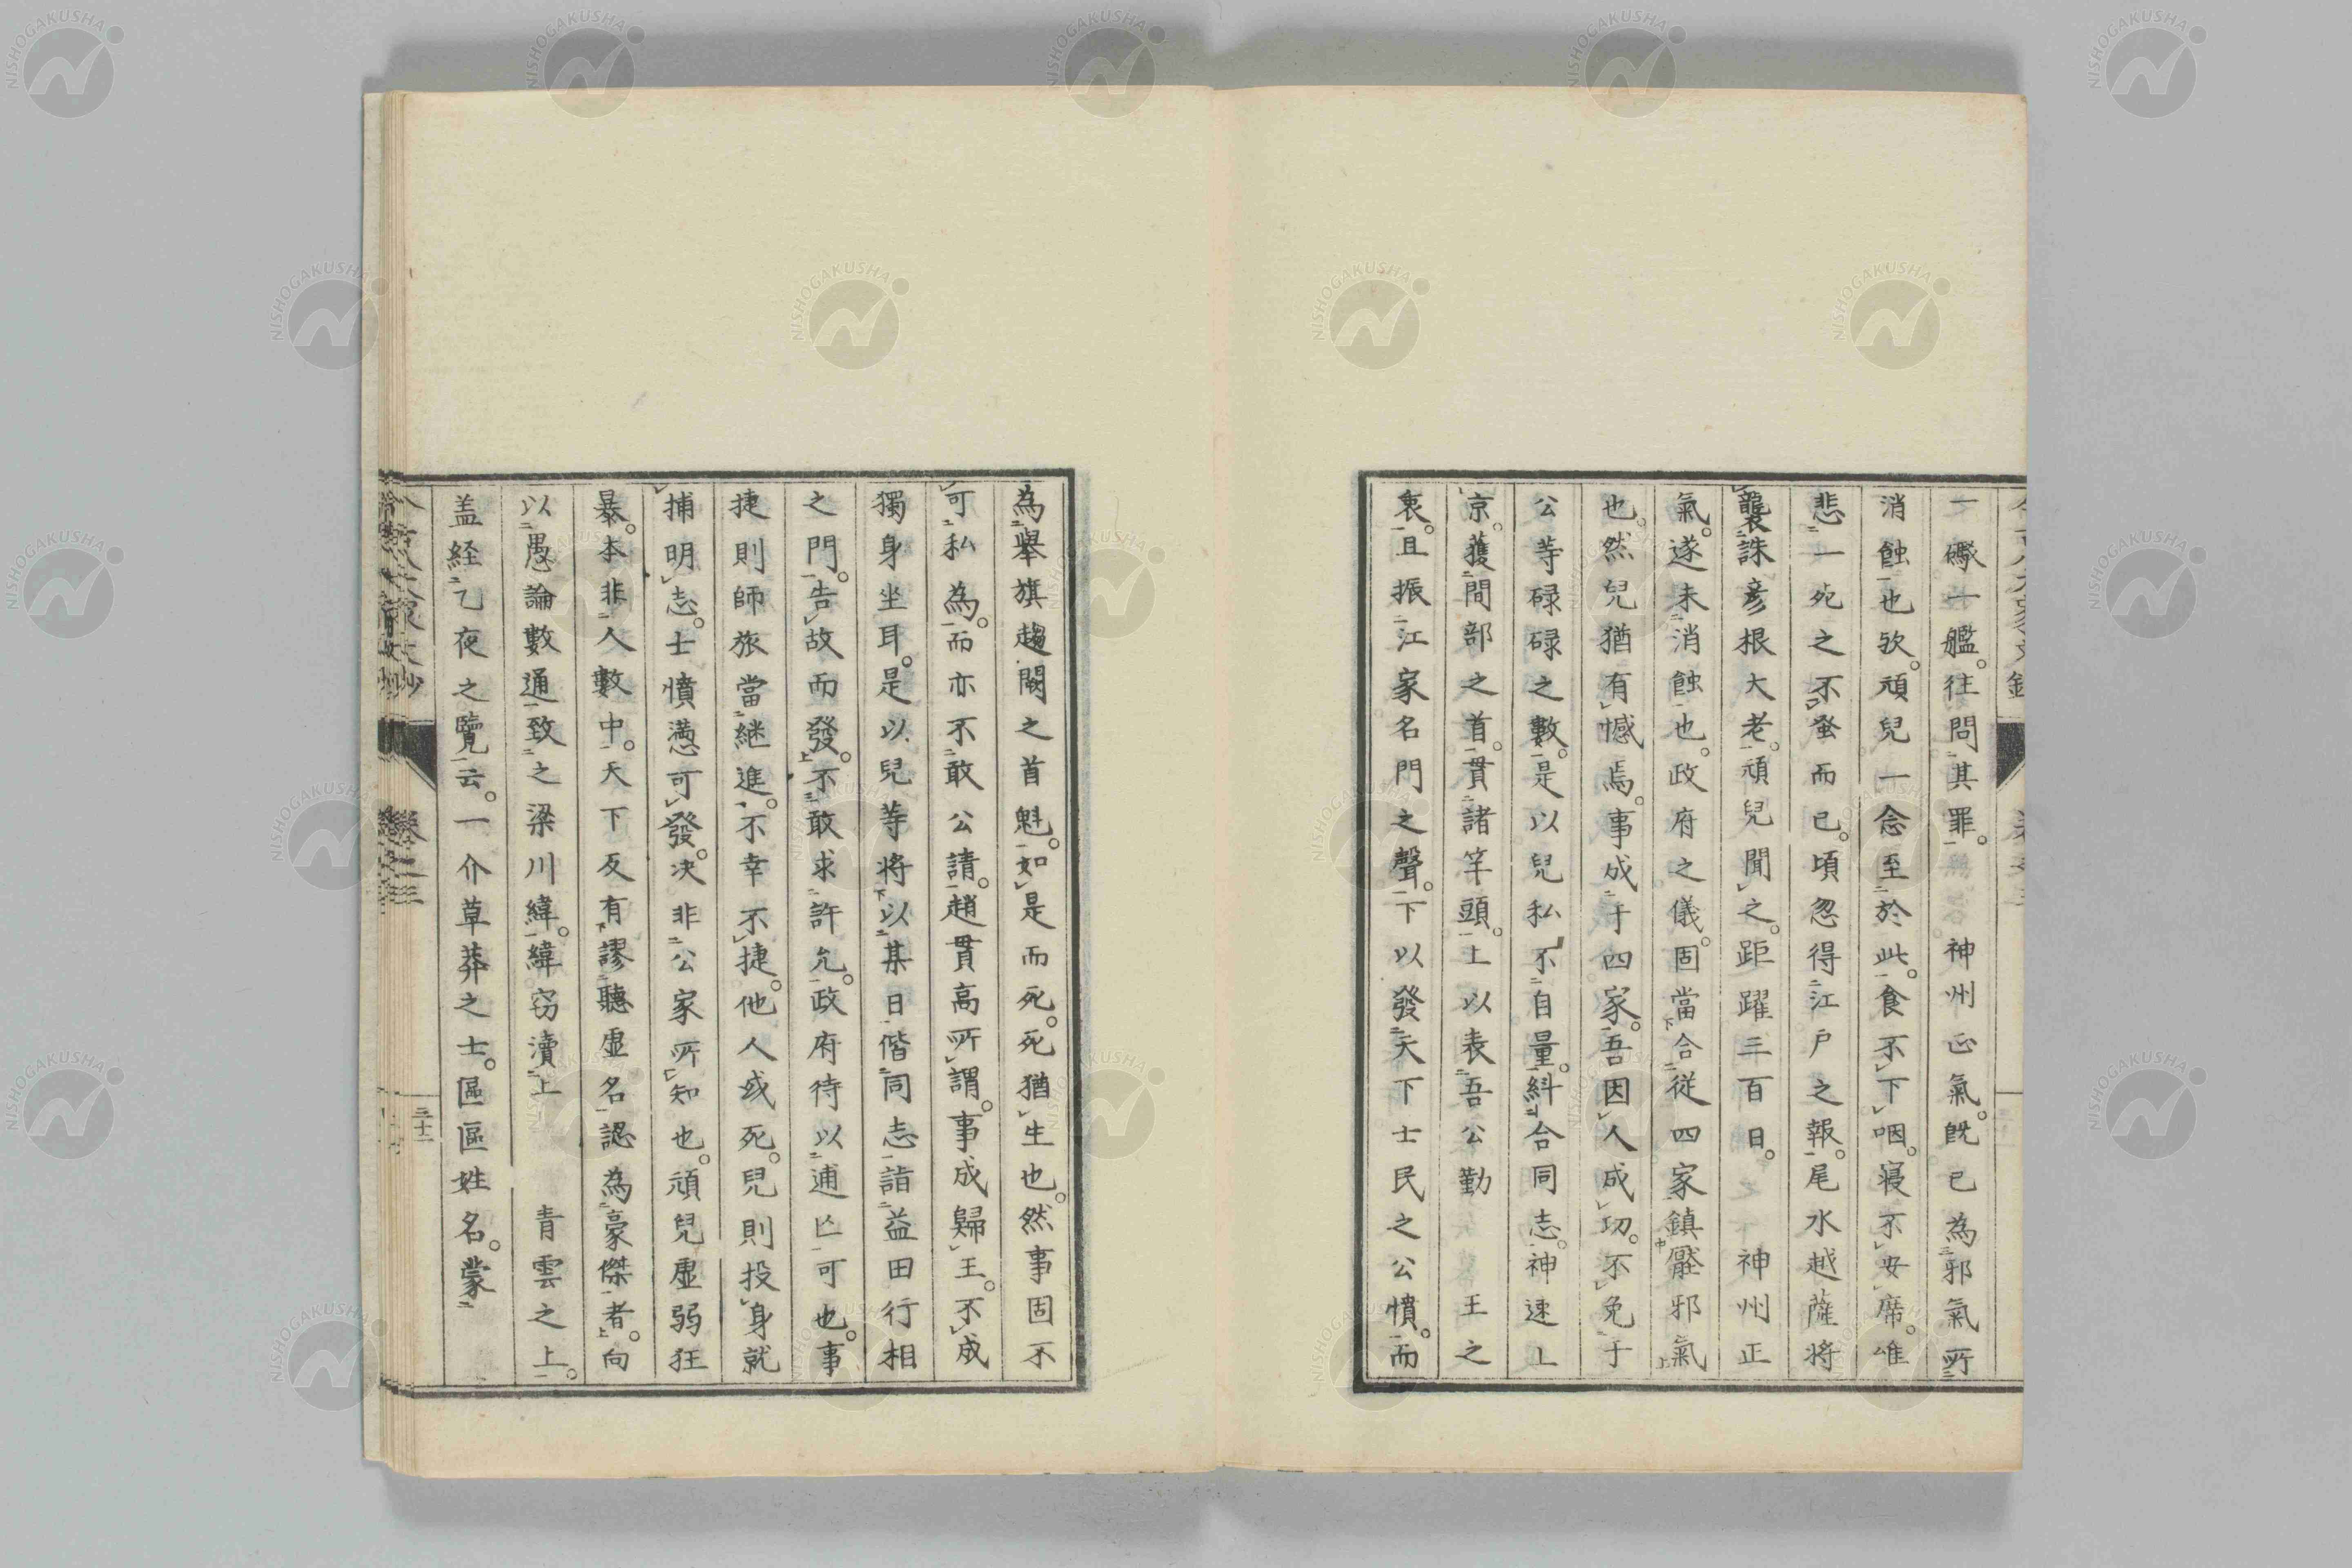 一礮一艦。往問其罪。 神州正氣。既已為邪氣所
消蝕也歟。頑兒一念至於此。食不下咽。寝不安席。唯
悲一死之不蚤而已。頃忽得江戸之報。尾水越薩將
襲誅彦根大老。頑兒聞之。距躍三百日。 神州正
氣。遂未消蝕也。政府之儀。固當合從四家鎮壓邪氣
也。然兒猶有憾焉。事成于四家。吾因人成功。不免于
公等碌碌之數。是以兒私不自量。糾合同志。神速上
京。獲間部之首。貫諸竿頭。上以表吾公勤 王之
衷。且振江家名門之聲。下以發天下士民之公憤。而
為舉旗趨闕之首魁。如是而死。死猶生也。然事固不
可私為。而亦不敢公請。趙貫高所謂。事成歸王。不成
獨身坐耳。是以兒等將以某日偕同志詣益田行相
之門。告故而發。不敢求許允。政府待以逋亡可也。事
捷則師旅當繼進。不幸不捷。他人或死。兒則投身就
捕明志。士憤懣可發。决非公家所知也。頑兒虚弱狂
暴。本非人數中。天下反有謬聽虚名認為豪傑者。向
以愚論數通致之梁川緯。緯窃瀆上 青雲之上。
盖経乙夜之覽云。一介草莽之士。區區姓名。蒙
卷之三
三十一